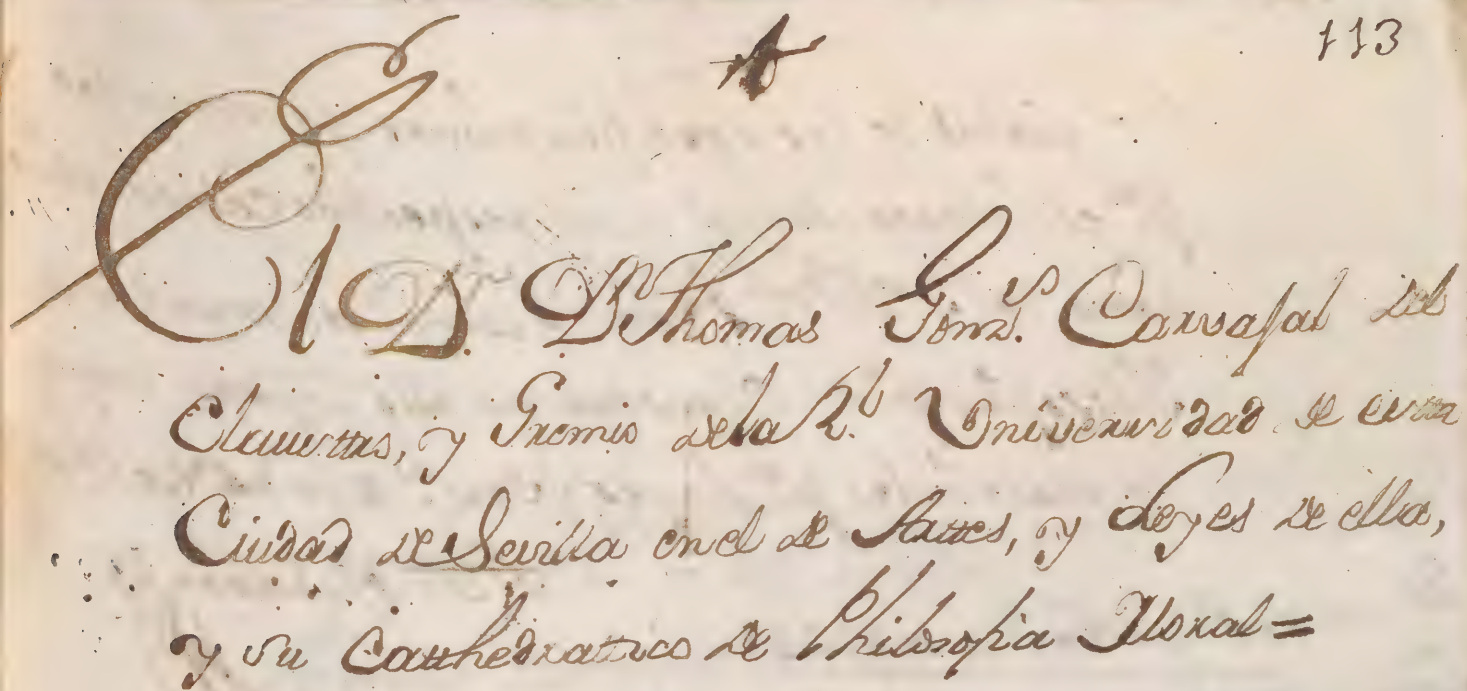 113
El D.r D.n Thomas Gonz.s Carvajal del
Claustro, y Gremio de la R.l Universidad de esta
Ciudad de Sevilla en el de Artes, y Leyes de ella,
y su Catthedrattico de Philosophia Moral=